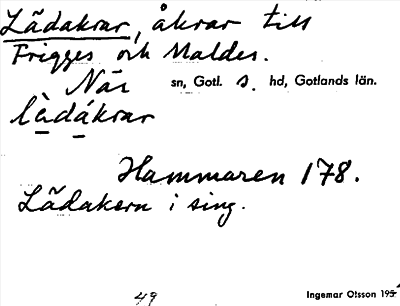 Lädakrar, åkrar till
Frigges och Maldes.
När sn, Gotl. s. hd, Gotlands län.
lädákrar
Hammaren 178.
Lädakern i sing.
49 Ingemar Olsson 195